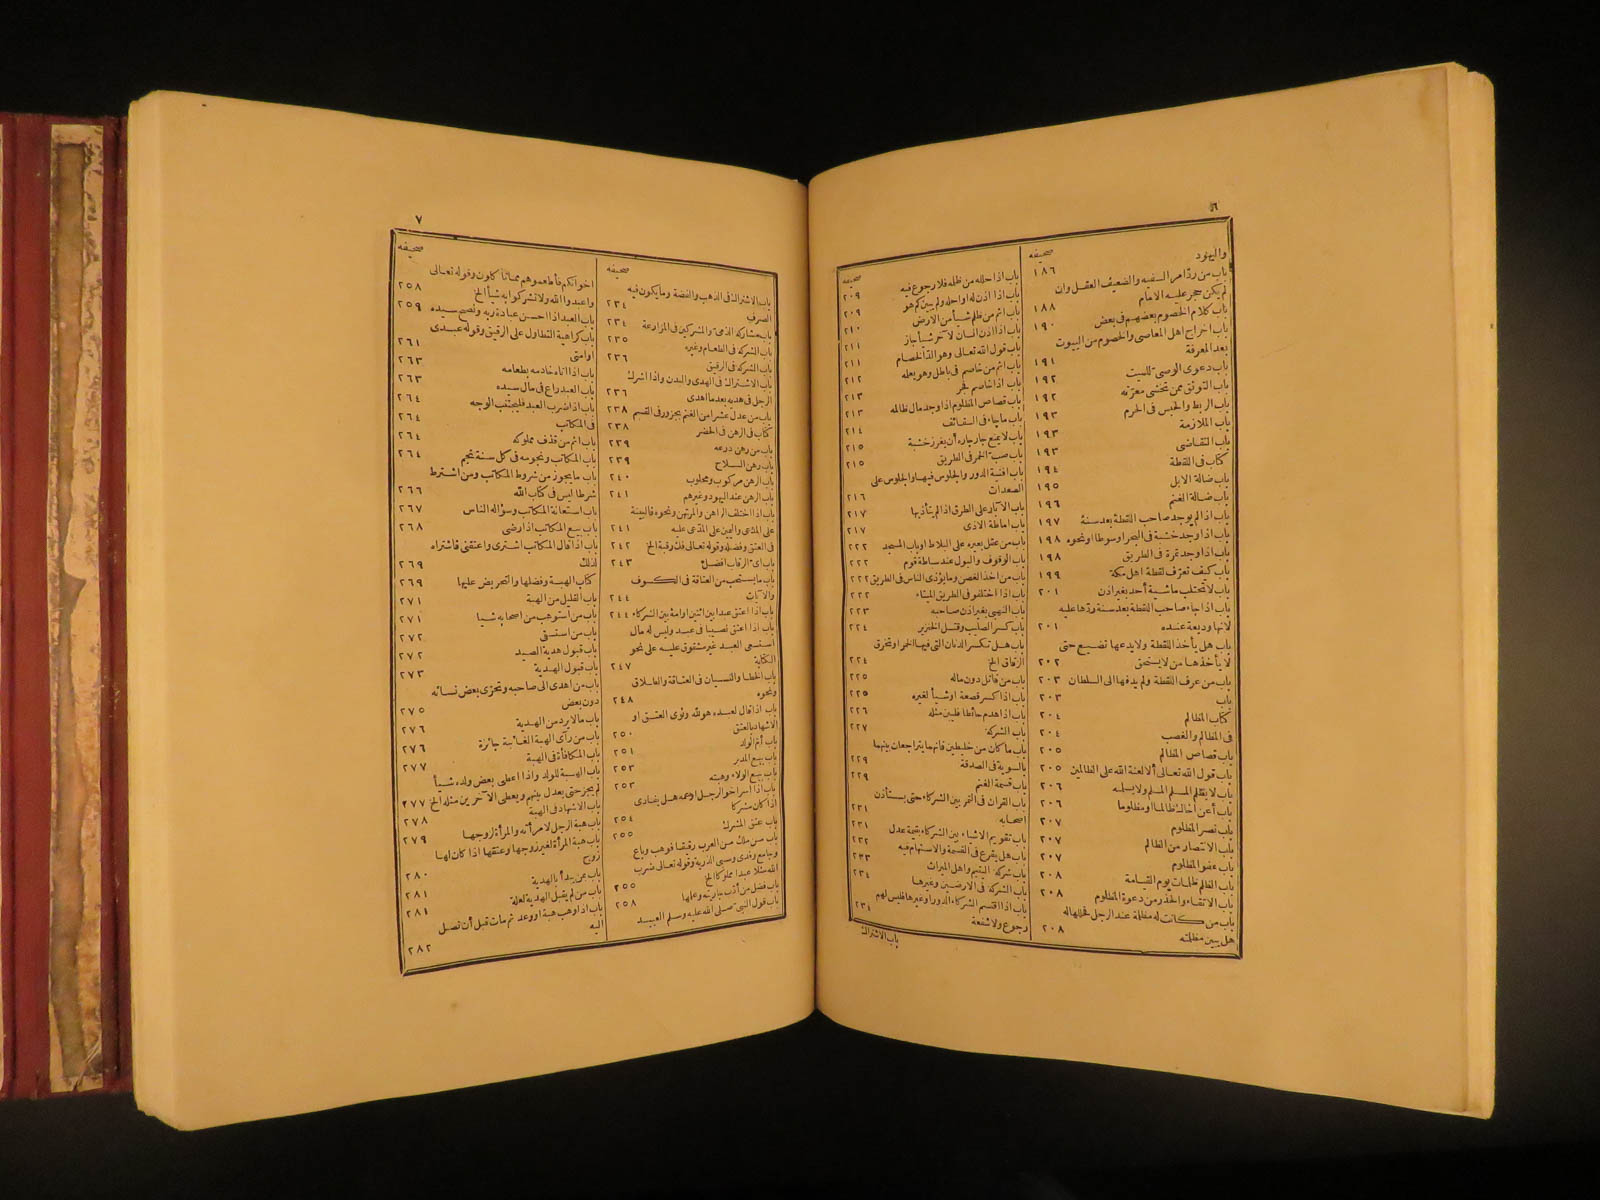 ٦
صحيفه
واليهود
١٨٦
باب من رد امر السفيه والضعيف العقل وان
لم يكن حجر عليه الامام
١٨٨
باب كلام الخصوم بعضهم فى بعض
١٩٠
باب اخراج اهل المعاصى والخصوم من البيوت
بعد المعرفة
١٩١
باب دعوى الوصى للميت
١٩٢
باب التوثق ممن تخشى معرّته
١٩٢
باب الربط والحبس فى الحرم
١٩٣
باب الملازمة
١٩٣
باب التقاضى
١٩٣
كتاب فى اللقطة
١٩٤
باب ضالة الابل
١٩٥
باب ضالة الغنم
١٩٦
باب اذا لم يوجد صاحب اللقطة بعد سنة ١٩٧
باب اذا وجد خشبة فى البحر اوسوطا اونحوه ١٩٨
باب اذا وجد تمرة فى الطريق ١٩٨
باب كيف تعرّف لقطة اهل مكة ١٩٩
باب لا تحتلب ماشية أحد بغير اذن ٢٠١
باب اذا جاء صاحب اللقطة بعد سنة ردّها عليه
لانها وديعة عنده ٢٠١
باب هل يأخذ اللقطة ولا يدعها تضيع حتى
لا يأخذها من لا يستحق ٢٠٢
باب من عرف اللقطة ولم يدفها الى السلطان ٢٠٣
باب ٢٠٣
كتاب المظالم ٢٠٤
فى المظالم والغصب ٢٠٤
باب قصاص المظالم ٢٠٥
باب قول الله تعالى ألا لعنة الله على الظالمين ٢٠٥
باب لا يظلم المسلم المسلم ولا يسلمه ٢٠٦
باب أعن أخاك ظالما او مظلوما ٢٠٦
باب نصر المظلوم ٢٠٧
باب الانتصار من الظالم ٢٠٧
باب عفو المظلوم ٢٠٧
باب الظلم ظلمات يوم القيامة ٢٠٨
باب الاتقاء والحذر من دعوة المظلوم ٢٠٨
باب من كانت له مظلمة عند الرجل فحللها له
هل يبين مظلمته ٢٠٨
صحيفه
باب اذا حلله من ظلمه فلا رجوع فيه ٢٠٩
باب اذا اذن له او احله ولم يبين كم هو ٢٠٩
باب اثم من ظلم شيأ من الارض ٢١٠
باب اذا اذن انسان لآخر شيأ جاز ٢١١
باب قول الله تعالى وهو الد الخصام ٢١١
باب اثم من خاصم فى باطل وهو يعلمه ٢١٢
باب اذا خاصم فجر ٢١٣
باب قصاص المظلوم اذا وجد مال ظالمه ٢١٣
باب ما جاء فى السقائف ٢١٤
باب لا يمنع جار جاره أن يغرز خشبة ٢١٥
باب صب الخمر فى الطريق ٢١٥
باب افنية الدور والجلوس فيها والجلوس على
الصعدات ٢١٦
باب الآبار على الطرق اذا لم يتأذ بها ٢١٧
باب اماطة الاذى ٢١٧
باب من عقل بعيره على البلاط او باب المسجد ٢٢٢
باب الوقوف والبول عند سباطة قوم ٢٢٢
باب من اخذ الغصن وما يؤذى الناس فى الطريق ٢٢٢
باب اذا اختلفوا فى الطريق الميتاء ٢٢٢
باب النهبى بغير اذن صاحبه ٢٢٣
باب كسر الصليب وقتل الخنزير ٢٢٤
باب هل تكسر الدنان التى فيها الخمر او تخرق
الزقاق الخ ٢٢٤
باب من قاتل دون ماله ٢٢٥
باب اذا كسر قصعة او شيأ لغيره ٢٢٥
باب اذا هدم حائطا فليبن مثله ٢٢٦
باب الشركة ٢٢٧
باب ما كان من خليطين فانهما يتراجعان بينهما
بالسوية فى الصدقة ٢٢٩
باب قسمة الغنم ٢٢٩
باب القران فى التمر بين الشركاء حتى يستأذن
اصحابه ٢٣١
باب تقويم الاشياء بين الشركاء بقيمة عدل ٢٣١
باب هل يقرع فى القسمة والاستهام فيه ٢٣٢
باب شركة اليتيم واهل الميراث ٢٣٣
باب الشركة فى الارضين وغيرها ٢٣٤
باب اذا اقتسم الشركاء الدور او غيرها فليس لهم
رجوع ولا شفعة ٢٣٤
باب الاشتراك
٧
صحيفه
باب الاشتراك فى الذهب والفضة وما يكون فيه
الصرف ٢٣٤
باب مشاركة الذمى والمشركين فى المزارعة ٢٣٤
باب الشركة فى الطعام وغيره ٢٣٥
باب الشركة فى الرقيق ٢٣٦
باب الاشتراك فى الهدى والبدن واذا اشرك
الرجل فى هديه بعد ما اهدى ٢٣٦
باب من عدل عشرا من الغنم بجزور فى القسم ٢٣٨
كتاب فى الرهن فى الحضر ٢٣٨
باب من رهن درعه ٢٣٩
باب رهن السلاح ٢٣٩
باب الرهن مركوب ومحلوب ٢٤٠
باب الرهن عند اليهود وغيرهم ٢٤١
باب اذا اختلف الراهن والمرتهن ونحوه فالبينة
على المدعى واليمين على المدّعى عليه ٢٤١
فى العتق وفضله وقوله تعالى فك رقبة الخ ٢٤٢
باب اىّ الرقاب افضل ٢٤٣
باب ما يستحب من العتاقة فى الكسوف
والآيات ٢٤٤
باب اذا اعتق عبدا بين اثنين او امة بين الشركاء ٢٤٤
باب اذا اعتق نصيبا فى عبد وليس له مال
استسعى العبد غير مشقوق عليه على نحو
الكتابة ٢٤٧
باب الخطا والنسيان فى العتاقة والطلاق
ونحوه ٢٤٨
باب اذا قال لعبده هو لله ونوى العتق او
الاشهاد بالعتق ٢٥٠
باب أم الولد ٢٥١
باب بيع المدبر ٢٥٣
باب بيع الولاء وهبته ٢٥٣
باب اذا اسر اخو الرجل او عمه هل يفادى
اذا كان مشركا
باب عتق المشرك ٢٥٤
باب من ملك من العرب رقيقا فوهب وباع ٢٥٥
وجامع وفدى وسبى الذرية وقوله تعالى ضرب
الله مثلا عبدا مملوكا الخ ٢٥٥
باب فضل من أدب جاريته وعلمها ٢٥٨
باب قول النبى صلى الله عليه وسلم العبيد
صحيفه
اخوانكم فأطعموهم مما تأكلون وقوله تعالى
واعبدوا الله ولا تشركوا به شيأ الخ ٢٥٨
باب العبد اذا احسن عبادة ربه ونصح سيده ٢٥٩
باب كراهية التطاول على الرقيق وقوله عبدى
او امتى ٢٦١
باب اذا اتاه خادمه بطعامه ٢٦٣
باب العبد راع فى مال سيده ٢٦٣
باب اذا ضرب العبد فليجتنب الوجه ٢٦٤
فى المكاتب ٢٦٤
باب اثم من قذف مملوكه ٢٦٤
باب المكاتب ونجومه فى كل سنة نجم ٢٦٤
باب ما يجوز من شروط المكاتب ومن اشترط
شرطا ليس فى كتاب الله ٢٦٦
باب استعانة المكاتب وسؤاله الناس ٢٦٧
باب بيع المكاتب اذا رضى ٢٦٨
باب اذا قال المكاتب اشترى واعتقنى فاشتراه
لذلك ٢٦٩
كتاب الهبة وفضلها والتحريض عليها ٢٦٩
باب القليل من الهبة ٢٧١
باب من استوهب من اصحابه شيأ ٢٧١
باب من استسقى ٢٧٢
باب قبول هدية الصيد ٢٧٢
باب قبول الهدية ٢٧٣
باب من اهدى الى صاحبه وتحرّى بعض نسائه
دون بعض ٢٧٥
باب ما لا يرد من الهدية ٢٧٦
باب من رأى الهبة الغائبة جائزة ٢٧٦
باب المكافأة فى الهبة ٢٧٧
باب الهبة للولد واذا اعطى بعض ولده شيأ
لم يجز حتى يعدل بينهم ويعطى الآخرين مثله الخ ٢٧٧
باب الاشهاد فى الهبة ٢٧٨
باب هبة الرجل لامرأته والمرأة لزوجها ٢٧٩
باب هبة المرأة لغير زوجها وعتقها اذا كان لها
زوج ٢٨٠
باب بمن يبدأ بالهدية ٢٨١
باب من لم يقبل الهدية لعلة ٢٨١
باب اذا وهب هبة او وعد ثم مات قبل أن تصل
اليه ٢٨٢